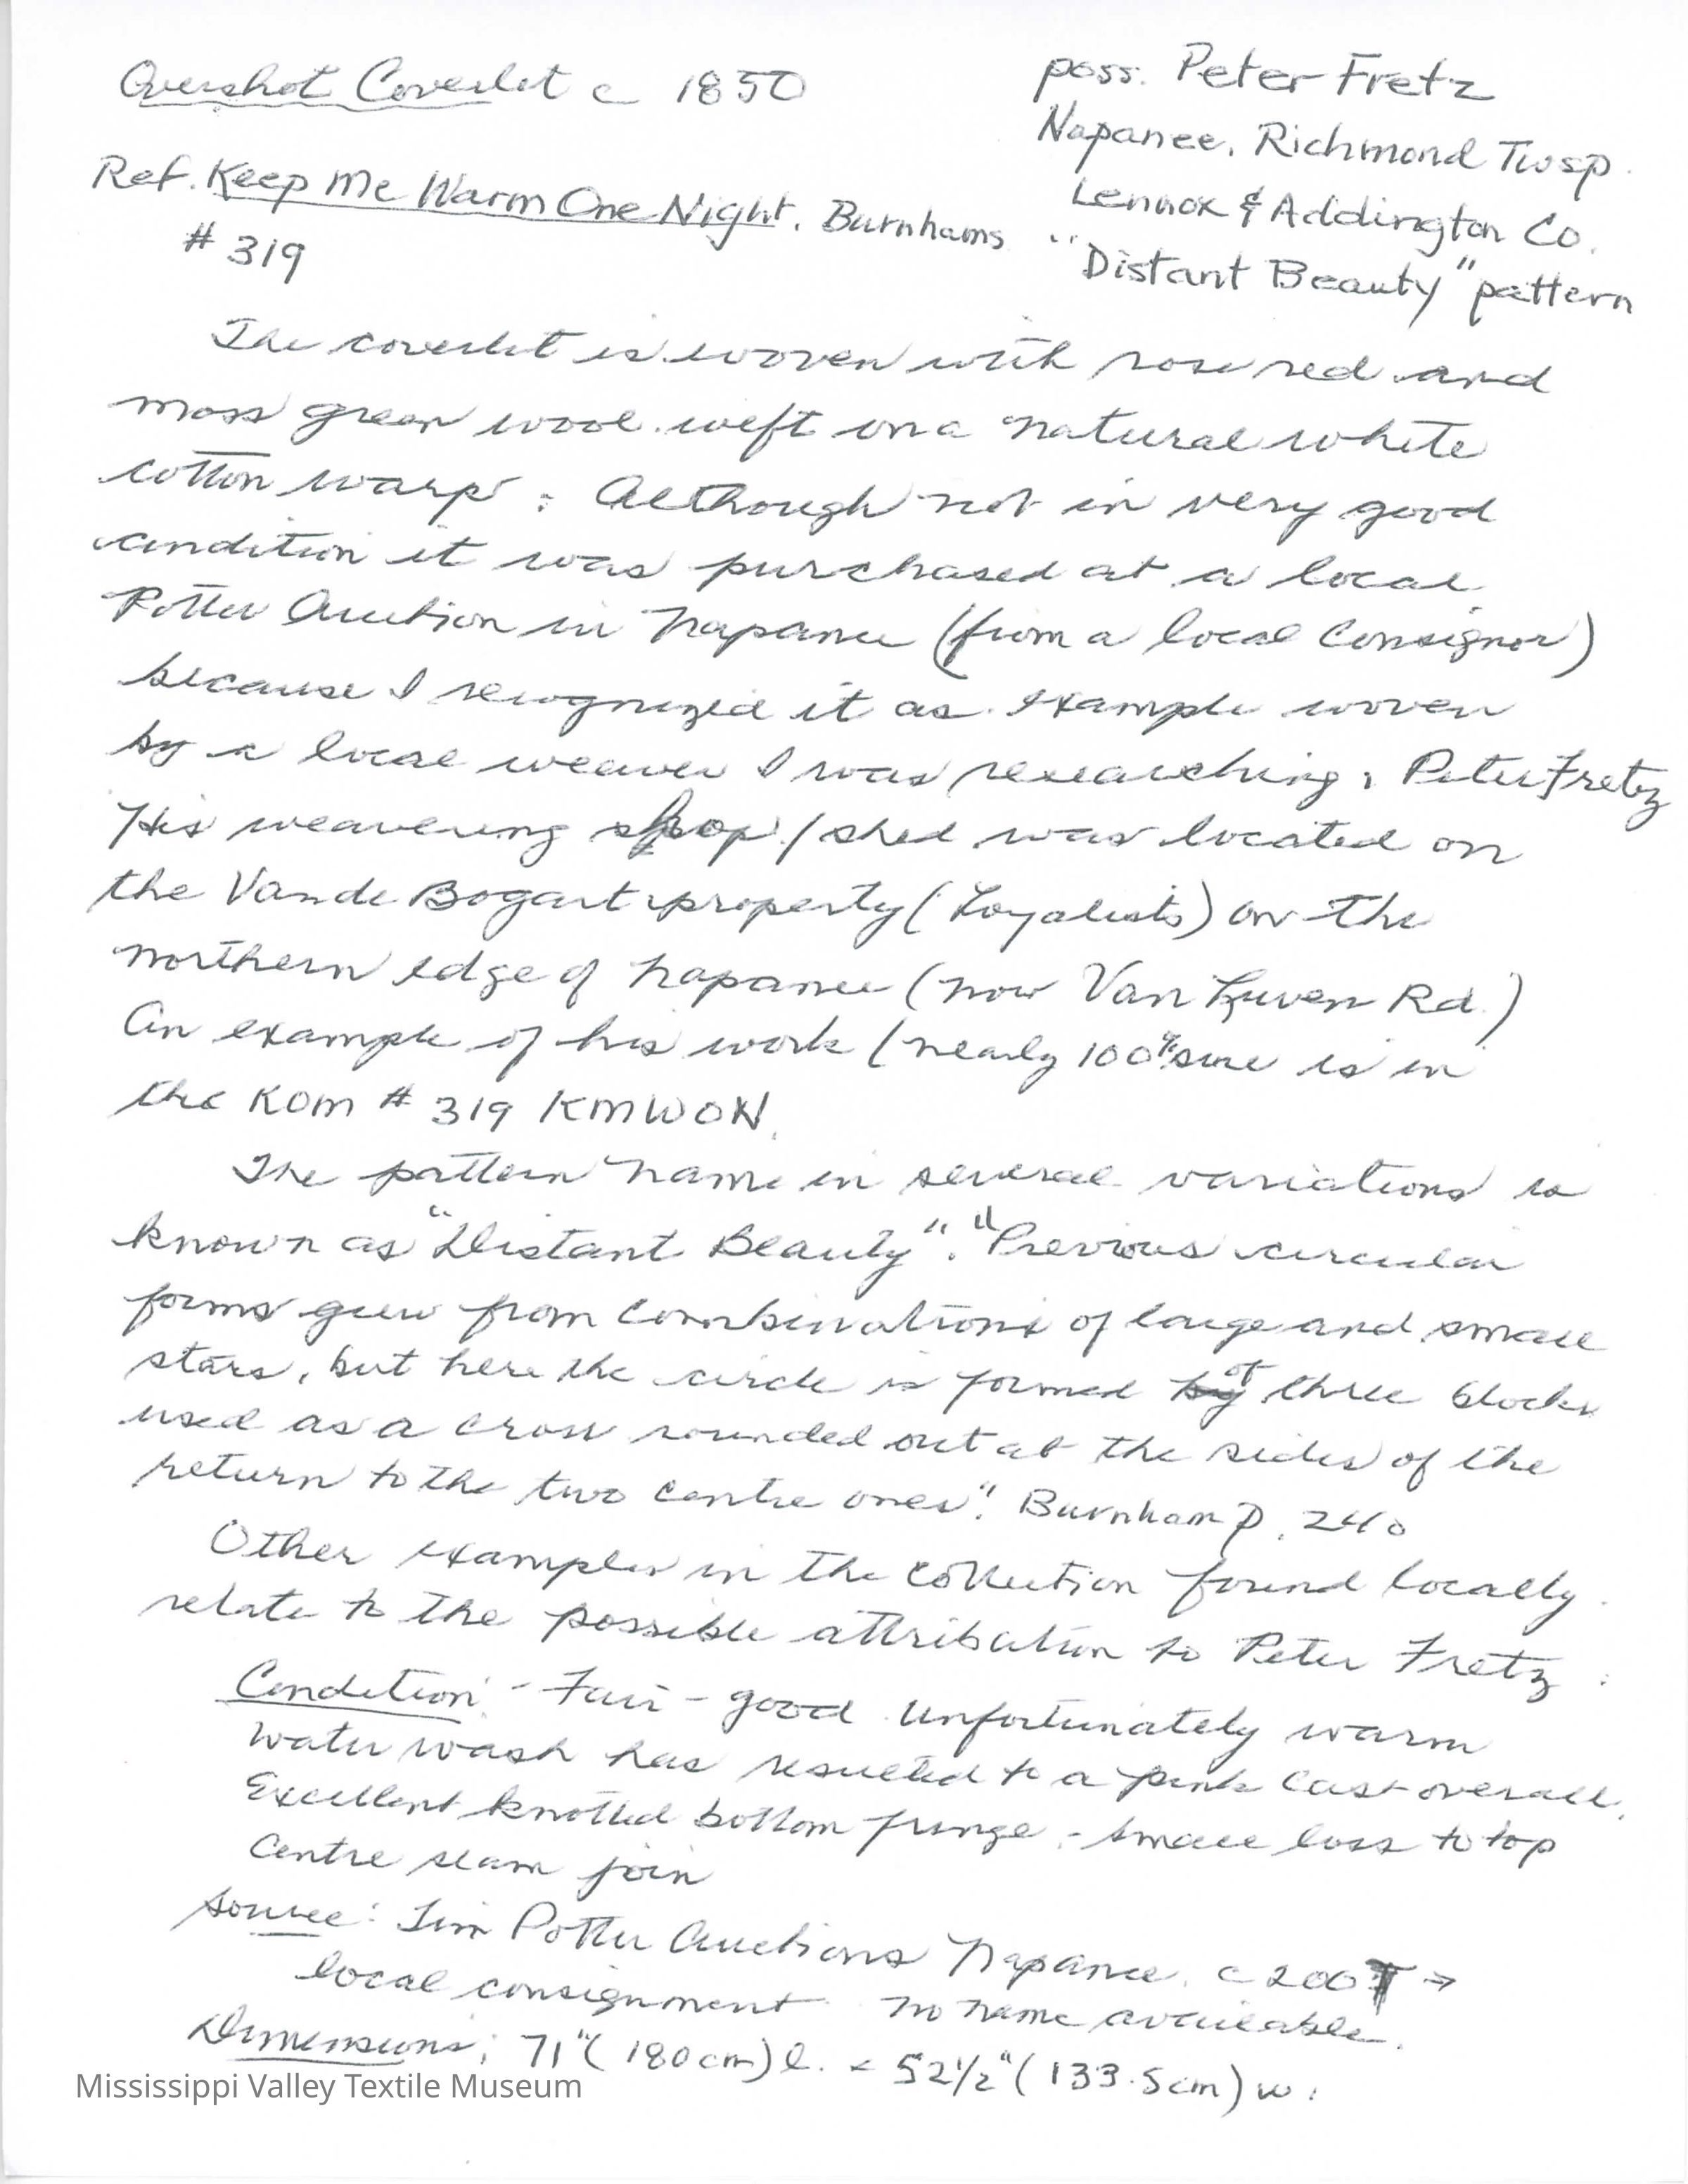 Overshot Coverlet c 1850
poss. Peter Fretz
Napanee, Richmond Twsp.
Lennox & Addington Co.
"Distant Beauty" pattern
Ref. Keep Me Warm One Night, Burnhams
# 319
The coverlet is woven with rose red and
moss green wool weft on a natural white
cotton warp. Although not in very good
condition it was purchased at a local
Potter Auction in Napanee (from a local Consignor)
because I recognized it as example woven
by a local weaver I was researching, Peter Fretz
His weavering shop/shed was located on
the Vande Bogart property (Loyalists) on the
northern edge of Napanee (now Van Luven Rd.)
An example of his work (nearly 100% sure is in
the ROM # 319 KMWON.
The pattern name in several variations is
known as "Distant Beauty". "Previous circular
forms grew from combinations of large and small
stars, but here the circle is formed by of three blocks
used as a cross rounded out at the sides of the
return to the two centre ones". Burnham p. 240
Other examples in the collection found locally
relate to the possible attribution to Peter Fretz.
Condition - Fair - good Unfortunately warm
water wash has resulted to a pink cast overall.
Excellent knotted bottom fringe - small loss to top
Centre seam join
Source: Jim Potter Auctions Napanee. c 200 →
local consignment no name available.
Dimensions; 71" (180cm) l. x 52 1/2" (133.5cm) w.
Mississippi Valley Textile Museum